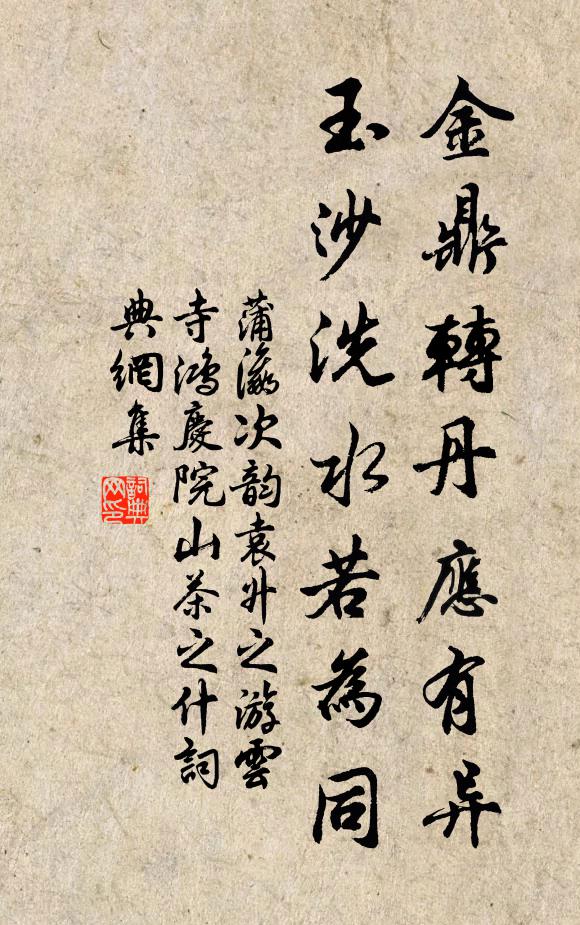 金鼎轉丹應有异
玉沙洗水若為同
蒲瀛次韵袁升之游雲
寺鴻慶院山茶之什詞
典網集
詞典
网印